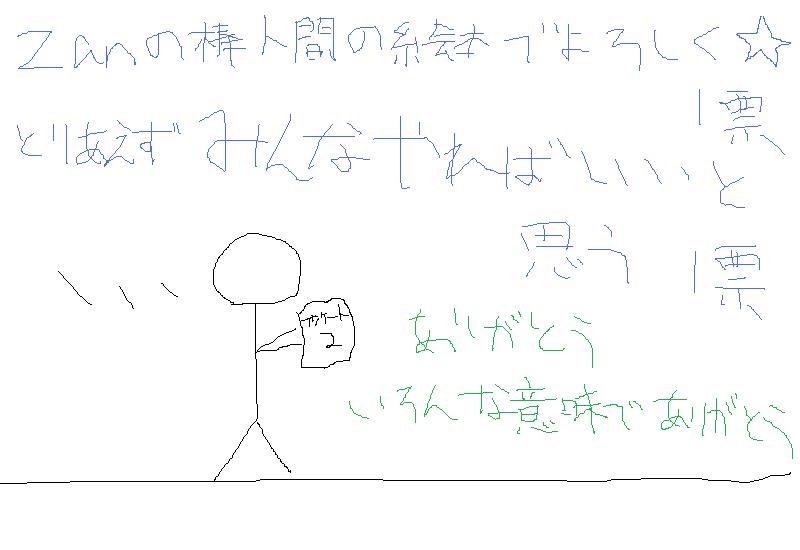 Zanの棒人間の絵本でよろしく☆
1票
とりあえずみんなやればいいと思う
1票
アンケート
2
ありがとう
いろんな意味でありがとう